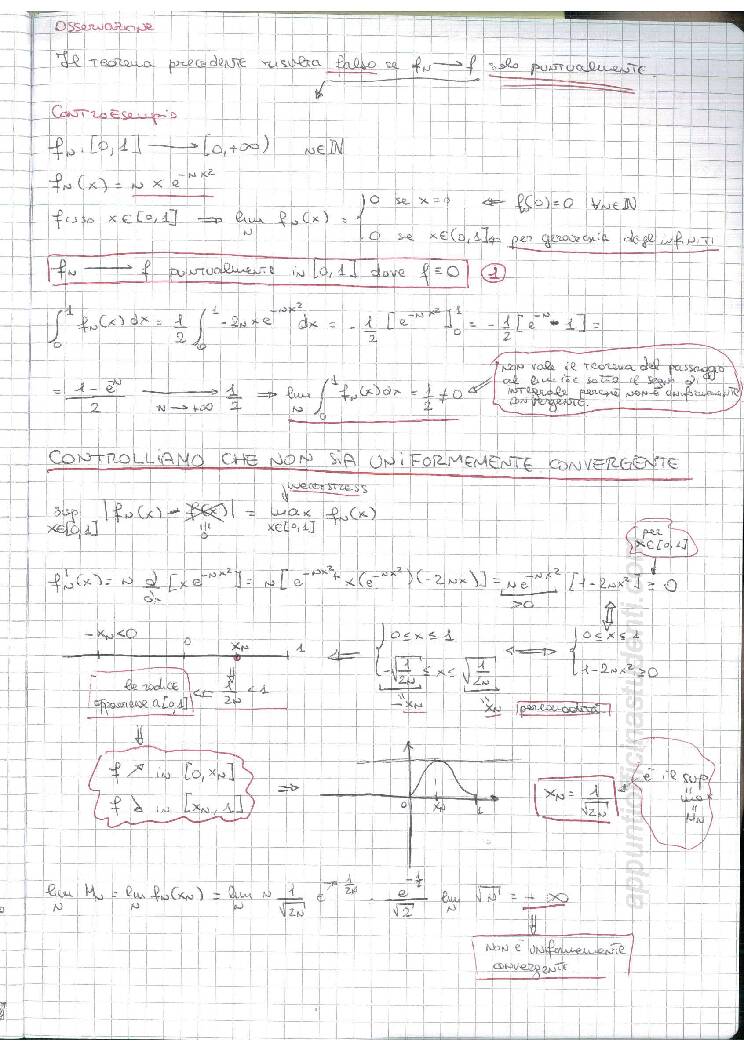 Osservazione
Il teorema precedente risulta falso se fN → f solo puntualmente.
Controesempio
fN : [0,1] → [0,+∞) N∈ℕ
fN(x) = N x e^(-Nx²)
fisso x∈[0,1] ⇒ lim_N fN(x) = { 0 se x=0 ⇐ fN(0)=0 ∀N∈ℕ
0 se x∈(0,1] ← per gerarchia degli infiniti
fN → f puntualmente in [0,1] dove f≡0 (1)
∫₀¹ fN(x)dx = 1/2 ∫₀¹ -2Nxe^(-Nx²) dx = -1/2 [e^(-Nx²)]₀¹ = -1/2 [e^(-N) - 1] =
= (1-e^(-N))/2 → (N→+∞) 1/2 ⇒ lim_N ∫₀¹ fN(x)dx = 1/2 ≠ 0
Non vale il teorema del passaggio
al limite sotto il segno di
integrale perché non è uniformemente
convergente.
CONTROLLIAMO CHE NON SIA UNIFORMEMENTE CONVERGENTE
Weierstrass
sup_{x∈[0,1]} |fN(x) - f(x)| = max_{x∈[0,1]} fN(x)
0
per
x∈[0,1]
f'N(x) = N d/dx [xe^(-Nx²)] = N [e^(-Nx²) + x(e^(-Nx²))(-2Nx)] = Ne^(-Nx²) [1-2Nx²] ≥ 0
>0
-xN<0 0 xN 1 ⇐ { 0≤x≤1 ⇔ { 0≤x≤1
-√(1/2N) ≤ x ≤ √(1/2N) 1-2Nx² ≥ 0
-xN xN per comodità
la radice
appartiene a [0,1] ⇐ 1/2N < 1
f ↗ in [0,xN]
f ↘ in [xN,1]
⇒ 0 xN 1
xN = 1/√(2N)
è il sup
max
MN
lim_N MN = lim_N fN(xN) = lim_N N 1/√(2N) e^(-N 1/2N) = e^(-1/2)/√2 lim_N √N = +∞
non è uniformemente
convergente
appuntiofficinastudenti.com